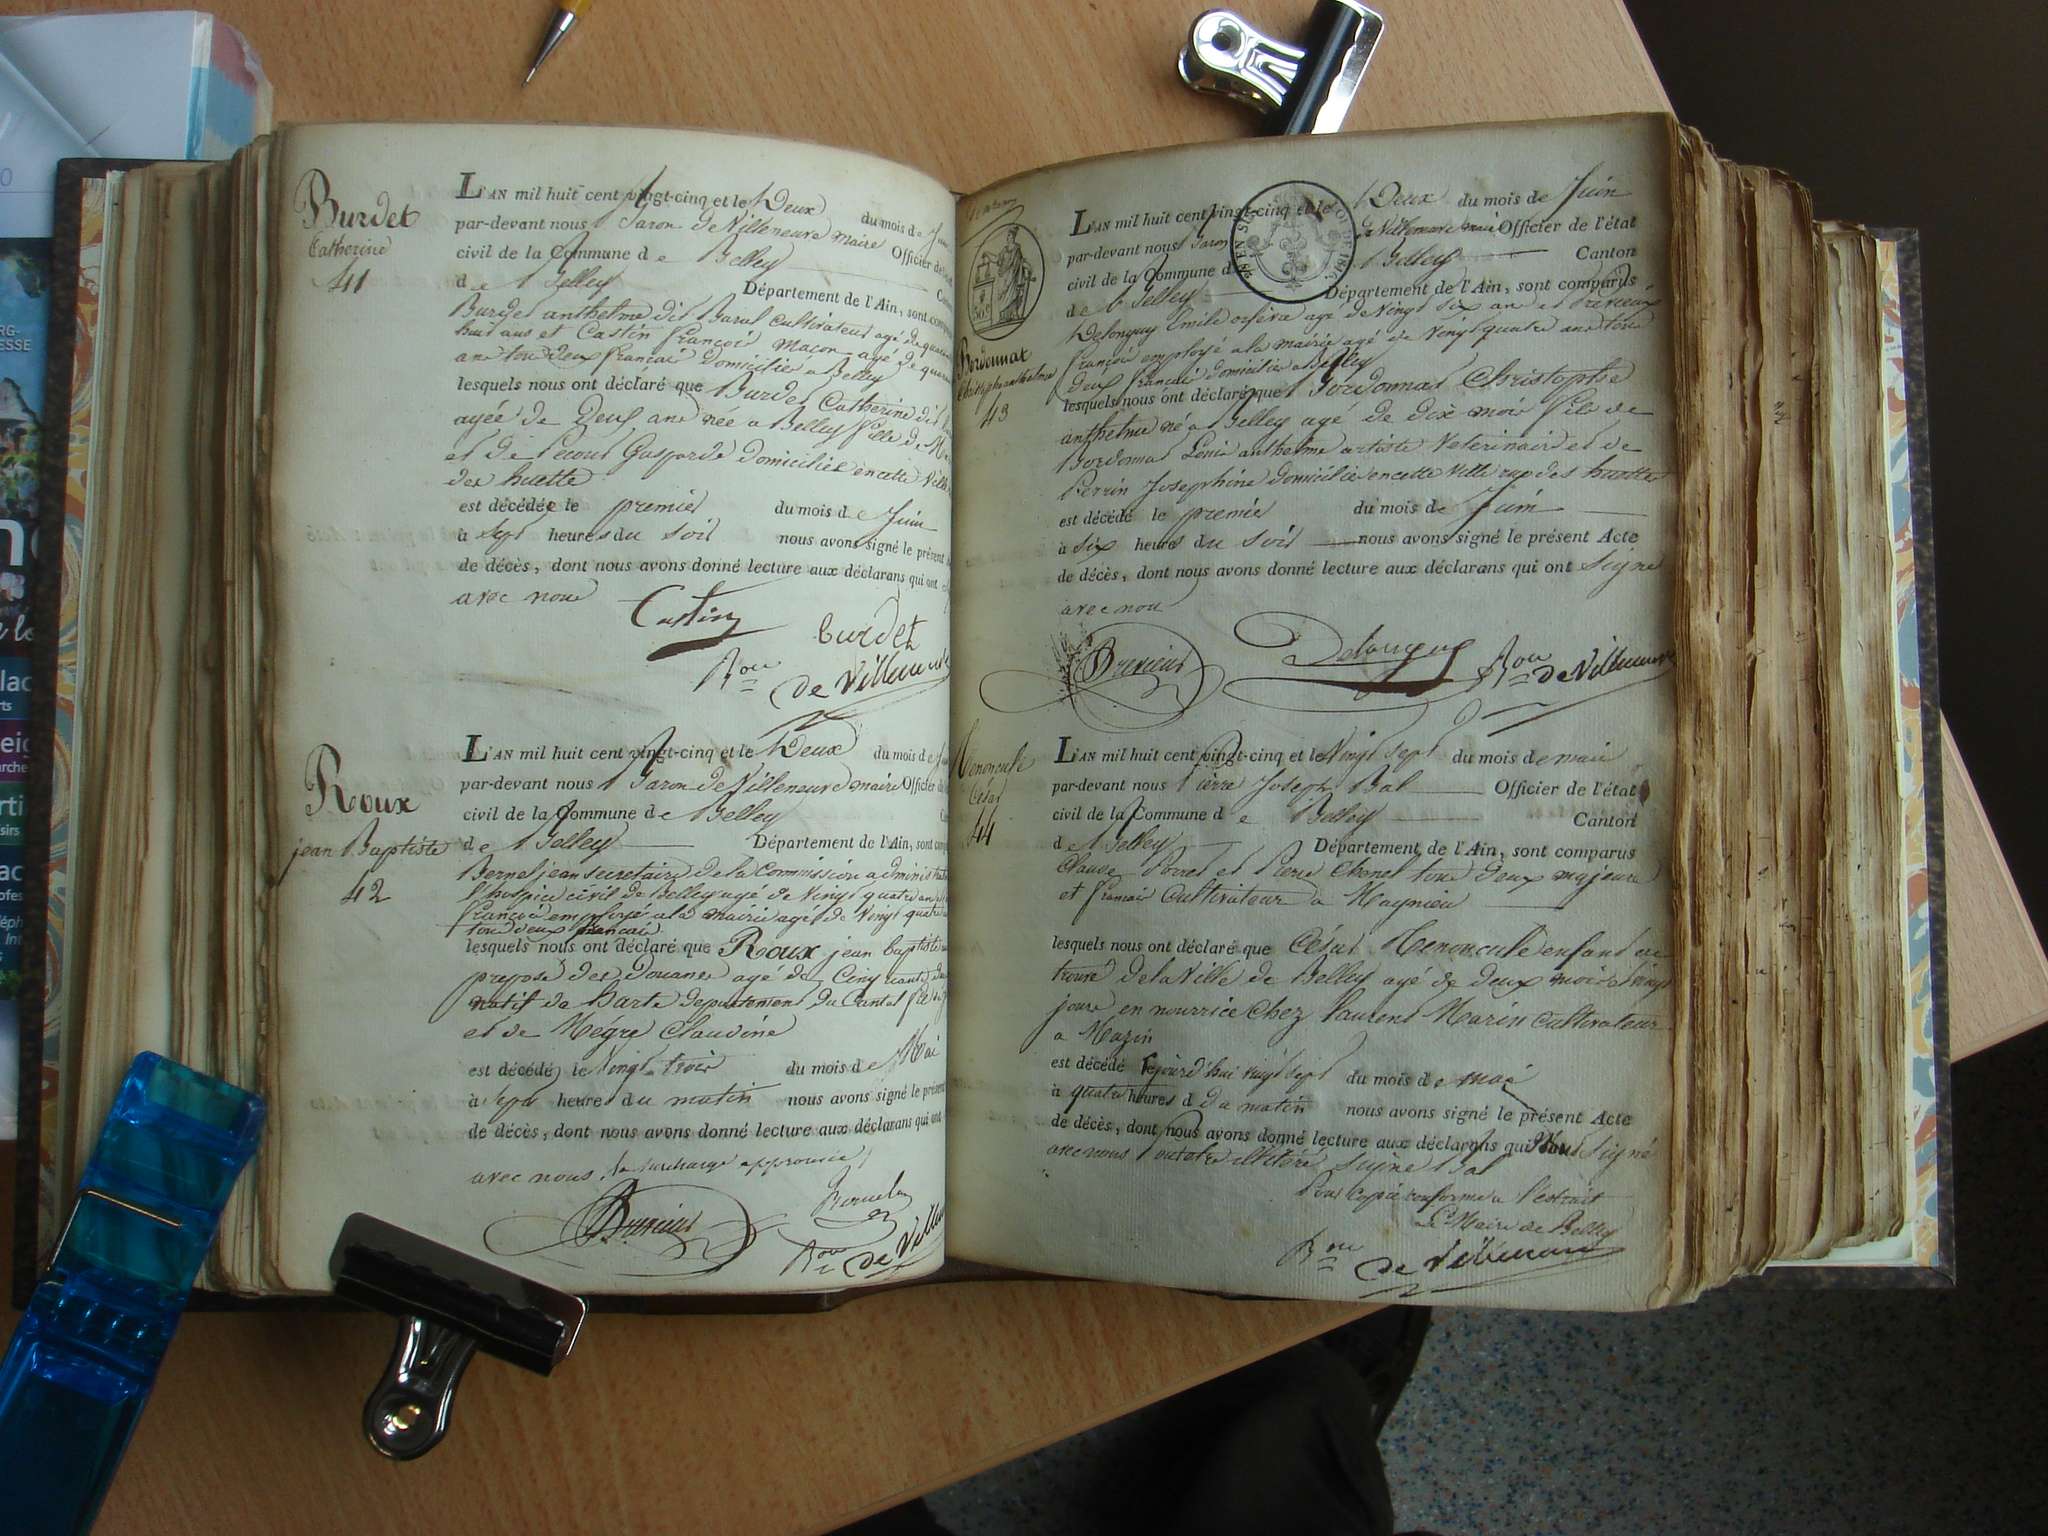 Burdet
Catherine
41
L'AN mil huit cent vingt-cinq et le Deux du mois de
par-devant nous Baron de Villeneuve maire Officier de
civil de la Commune de Belley
de Belley Département de l'Ain, sont
Burdet anthelme dit Baral Cultivateur agé de
huit ans et Castin françois maçon agé de
ans tou deux francais Domicilies a Belley
lesquels nous ont déclaré que Burdet Catherine
agée de Deux ans née a Belley fille de
et de Gasparde domicilies en cette Ville
des huette
est décédée le premier du mois de Juin
à Sept heures du soir nous avons signé le présent
de décès, dont nous avons donné lecture aux déclarans qui ont
avec nous
Castin
burdet
Bon de Villeneuve
Roux
jean Baptiste
42
L'AN mil huit cent vingt-cinq et le Deux du mois de
par-devant nous Baron de Villeneuve maire Officier
civil de la Commune de Belley
de Belley Département de l'Ain, sont
Bernel jean secretaire de la Commission
l'hospice civil de Belley agé de Vingt quatre ans
françois employé a la mairie agé de Vingt quatre
tous deux francais
lesquels nous ont déclaré que Roux jean baptiste
preposé des Douanes agé de Cinquante
natif de Barte departement du Cantal fils
et de Mègre Claudine
est décédé le Vingt trois du mois de Mai
à Sept heures du matin nous avons signé le présent
de décès, dont nous avons donné lecture aux déclarans qui ont
avec nous. la surcharge approuvée
Brevieux
Bon de Ville
Bordonnat
Christophe anthelme
43
L'AN mil huit cent vingt-cinq et le Deux du mois de Juin
par-devant nous Baron de Villeneuve maire Officier de l'état
civil de la Commune de Belley Canton
de Belley Département de l'Ain, sont comparus
Delonguy Emile orfèvre agé de Vingt Six ans et Brevieux
françois employé a la mairie agé de Vingt quatre ans tous
deux francais domicilies a Belley
lesquels nous ont déclaré que Bordonnat Christophe
anthelme né a Belley agé de dix mois fils de
Bordonnat Louis anthelme artiste Veterinaire et de
Perrin Josephine Domicilies en cette Ville rue des huette
est décédé le premier du mois de Juin
à Six heures du soir nous avons signé le présent Acte
de décès, dont nous avons donné lecture aux déclarans qui ont Signé
avec nou
Brevieux
Bon de Villeneuve
César
44
L'AN mil huit cent vingt-cinq et le Vingt sept du mois de mai
par-devant nous Pierre Joseph Bal Officier de l'état
civil de la Commune de Belley Canton
de Belley Département de l'Ain, sont comparus
Claude et Pierre Chenel tous deux majeurs
et francais Cultivateurs a Magnieu
lesquels nous ont déclaré que César Renoncule enfant
trouvé de la Ville de Belley agé de deux mois Vingt
jours en nourrice Chez Laurent Marin Cultivateur
a Mazin
est décédé cejourd'hui vingt sept du mois de mai
à quatre heures du matin nous avons signé le présent Acte
de décès, dont nous avons donné lecture aux déclarans qui Signé
avec nous illiteré, signé Bal
Pour Copie conforme a l'extrait
Le Maire de Belley
Bon de Villeneuve